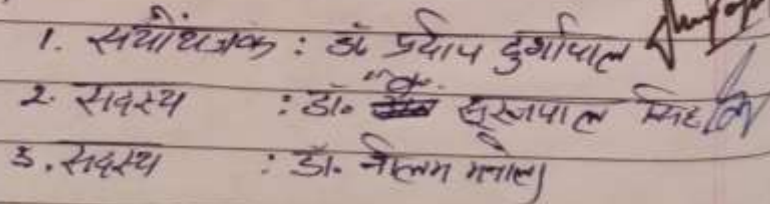 1. संयोजक : डॉ प्रदीप दुर्गापाल
2. सदस्य : डॉ. सूरजपाल सिंह
3. सदस्य : डॉ. नीलम